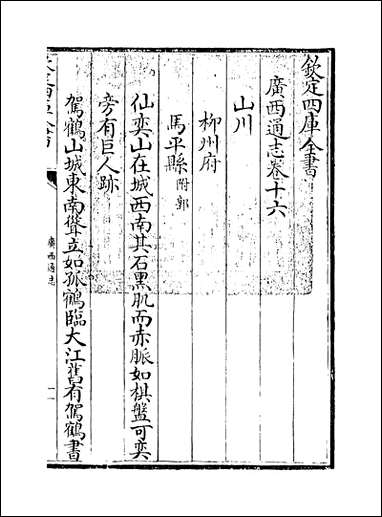 欽定四庫全書
廣西通志卷十六
山川
柳州府
馬平縣附郭
仙奕山在城西南其石黑肌而赤脈如棋盤可奕
旁有巨人跡
駕鶴山城東南聳立如孤鶴臨大江舊有駕鶴書
廣西通志